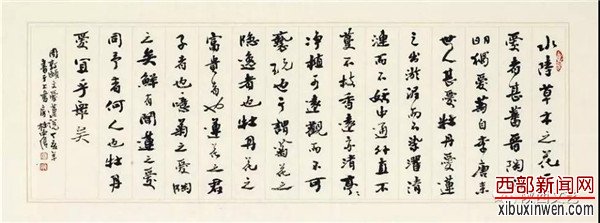 水陸草木之花可
愛者甚蕃晉陶
明獨愛菊自李唐来
世人甚愛牡丹愛蓮
之出淤泥而不染濯清
漣而不妖中通外直不
蔓不枝香遠益清
净植可遠觀而不可
褻玩也予謂菊花之
隱逸者也牡丹花之
富貴者也蓮花之君
子者也噫菊之愛陶
之矣鮮有聞蓮之愛
同予者何人也牡丹
愛宜乎衆矣
周敦頤文愛蓮說
西部新闻网
xibuxinwen.com